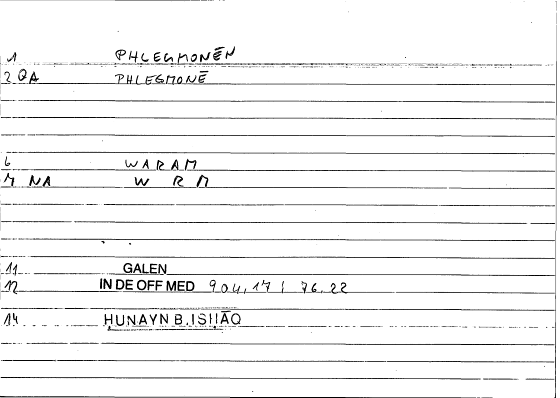 1 PHLEGMONĒN
2 QA PHLEGMONĒ
6 WARAM
7 NA W R M
11 GALEN
12 IN DE OFF MED 904,17 / 76.22
14 HUNAYN B. ISHĀQ